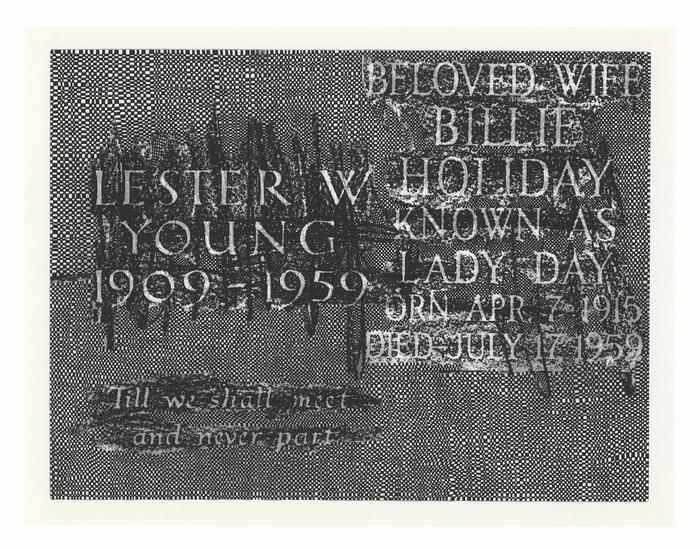 LESTER W
YOUNG
1909-1959
Till we shall meet
and never part
BELOVED WIFE
BILLIE
HOLIDAY
KNOWN AS
LADY DAY
ORN APR. 7 1915
DIED JULY 17 1959